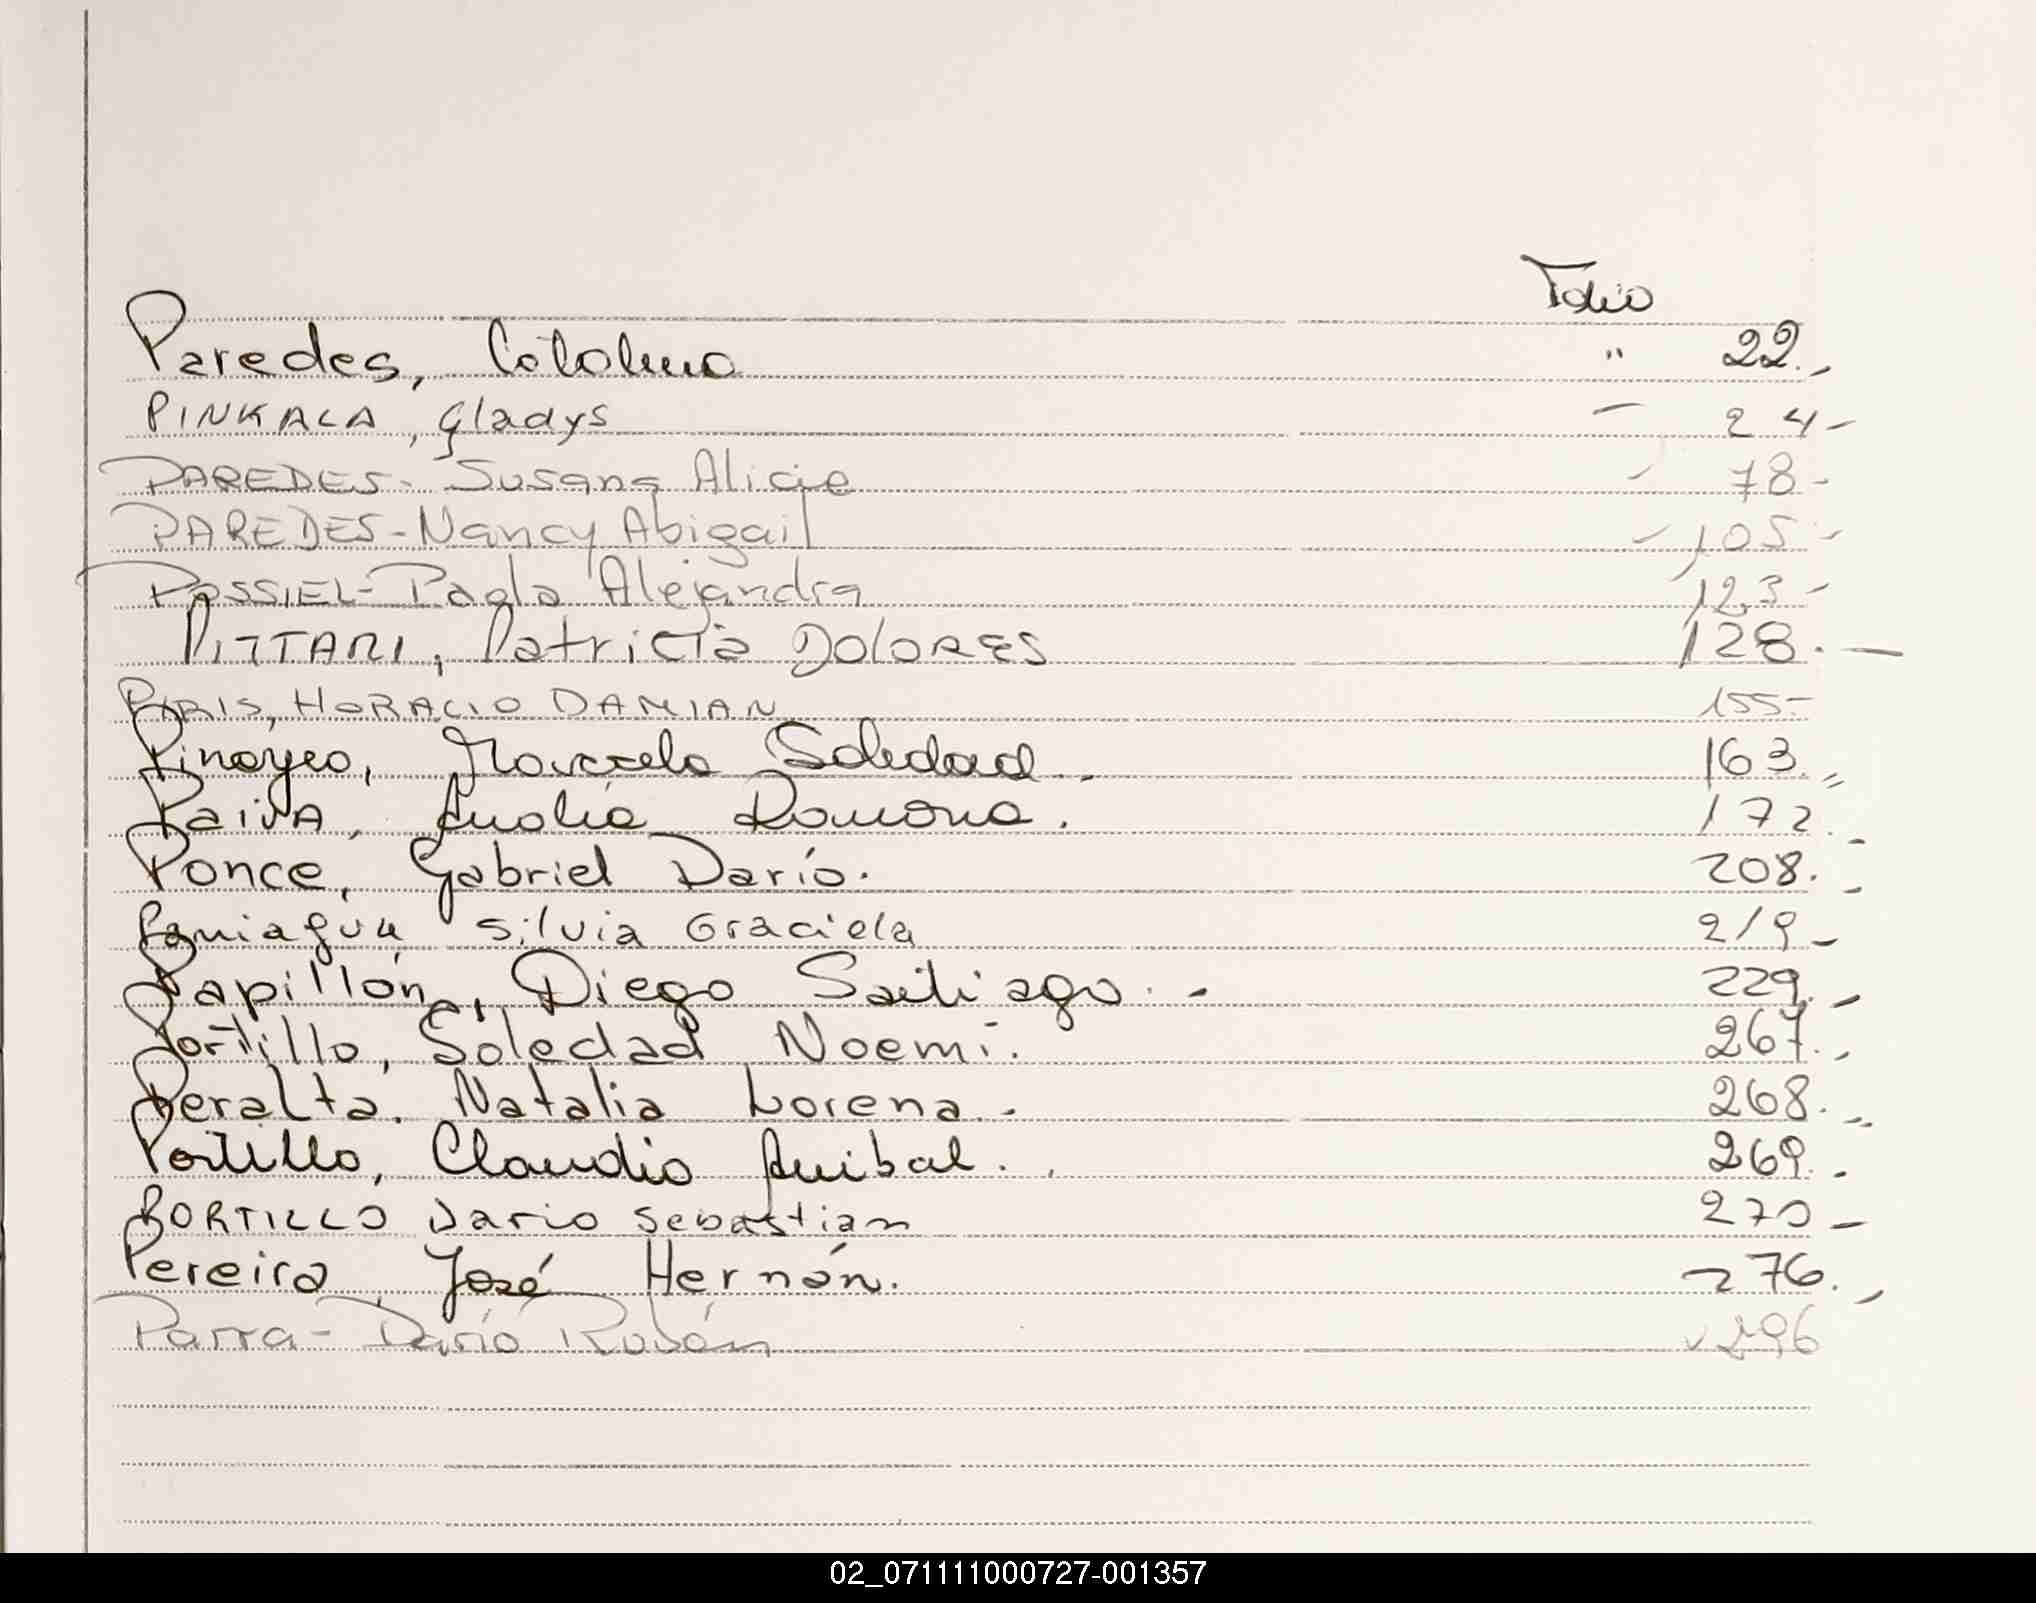 Folio
Paredes, Catalina " 22.-
PINKALA, Gladys - 24-
PAREDES- Susana Alicia - 78-
PAREDES-Nancy Abigail - 105-
POSSIEL- Paola Alejandra 123-
PITTARI, Patricia DOLORES 128.-
PIRIS, HORACIO DAMIAN 155-
Marcela Soledad.- 163.-
PaivA, Analía Ramona. 172.-
Ponce, Gabriel Darío. 208.-
Paniagua Silvia Graciela 219-
Papillón, Diego Santiago.- 229.-
Portillo, Soledad Noemi. 267.-
Peralta. Natalia Lorena.- 268.-
Portillo, Claudio Anibal. 269.-
PORTILLO Dario Sebastian 270-
Pereira, José Hernán. 276.-
Parra- Darío Rubén 296
02_071111000727-001357